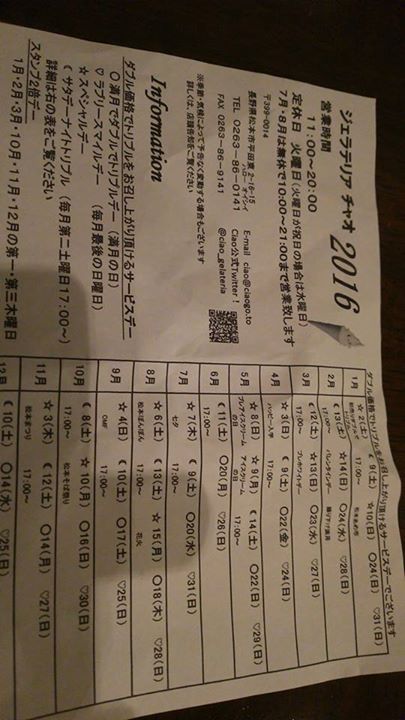 ジェラテリア チャオ 2016
営業時間
11:00~20:00
定休日 火曜日(火曜日が祝日の場合は水曜日)
7月・8月は無休で10:00~21:00まで営業致します
〒399-0014
長野県松本市平田東2-16-15
ハロー オーイシイ
TEL 0263-86-0141
FAX 0263-86-9141
E-mail ciao@ciaogo.to
Ciao公式Twitter!
@ciao_gelateria
※季節・気候によって予告なく変動する場合もございます
詳しくは、店頭告知をご覧ください
Information
ダブル価格でトリプルをお召し上がり頂けるサービスデー
〇 満月でダブルでトリプルデー (満月の日)
♡ ラブリースマイルデー (毎月最後の日曜日)
☆ スペシャルデー
☾ サタデーナイトトリプル (毎月第二土曜日17:00~)
詳細は右の表をご覧ください
スタンプ2倍デー
1月・2月・3月・10月・11月・12月の第一・第三木曜日
ダブル価格でトリプルをお召し上がり頂けるサービスデーでございます
1月 ☆2(土) ☾9(土) ☆10(日) 〇24(日) ♡31(日)
17:00~
2月 ☾13(土) ☆14(日) 〇24(水) ♡28(日)
17:00~ バレンタインデー
3月 ☾12(土) ☆13(日) 〇23(水) ♡27(日)
17:00~
4月 ☆3(日) ☾9(土) 〇22(金) ♡24(日)
17:00~
5月 ☆8(日) ☆9(月) ☾14(土) 〇22(日) ♡29(日)
プレアイスクリームの日 アイスクリームの日 17:00~
6月 ☾11(土) 〇20(月) ♡26(日)
17:00~
7月 ☆7(木) ☾9(土) 〇20(水) ♡31(日)
七夕 17:00~
8月 ☆6(土) ☾13(土) ☆15(月) 〇18(木) ♡28(日)
松本ぼんぼん 17:00~ 花火
9月 ☆4(日) ☾10(土) 〇17(土) ♡25(日)
OMF 17:00~
10月 ☾8(土) ☆10(月) 〇16(日) ♡30(日)
17:00~ 松本そば祭り
11月 ☆3(木) ☾12(土) 〇14(月) ♡27(日)
松本まつり 17:00~
12月 ☾10(土) 〇14(水) ♡25(日)